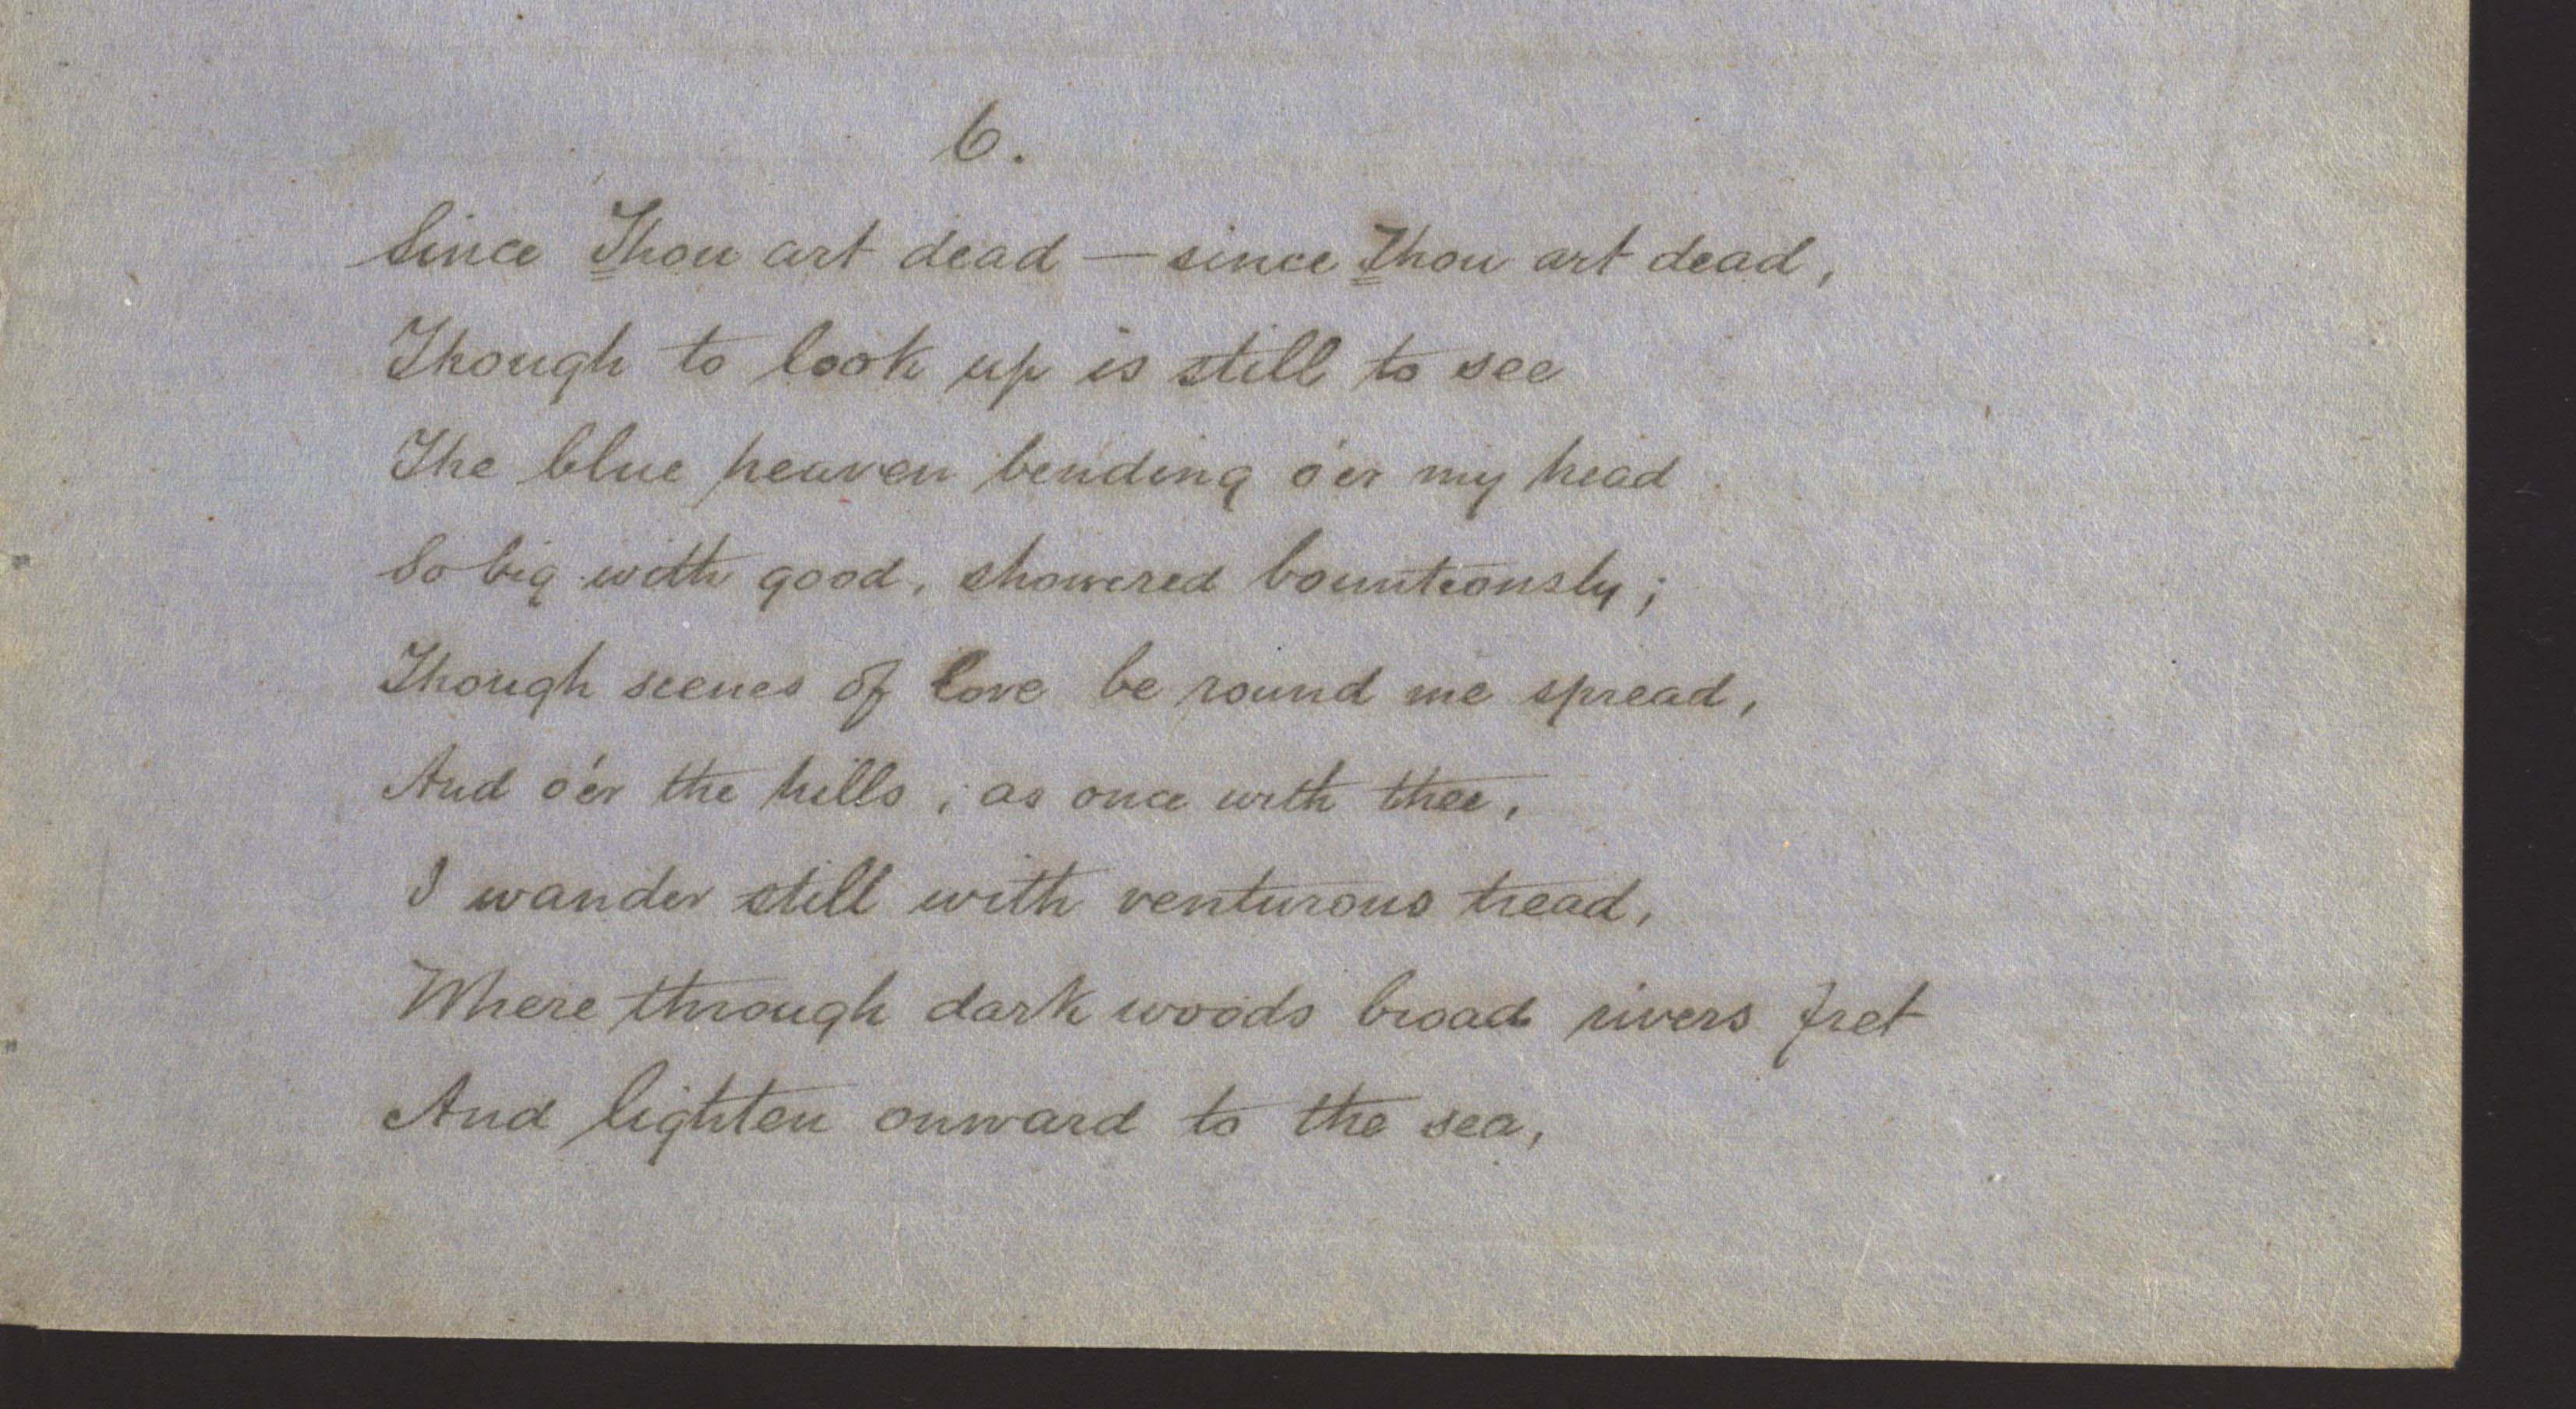 6.
Since Thou art dead — since Thou art dead,
Though to look up is still to see
The blue heaven bending o'er my head
So big with good, showered bounteously;
Though scenes of love be round me spread,
And o'er the hills, as once with thee,
I wander still with venturous tread,
Where through dark woods broad rivers fret
And lighten onward to the sea,